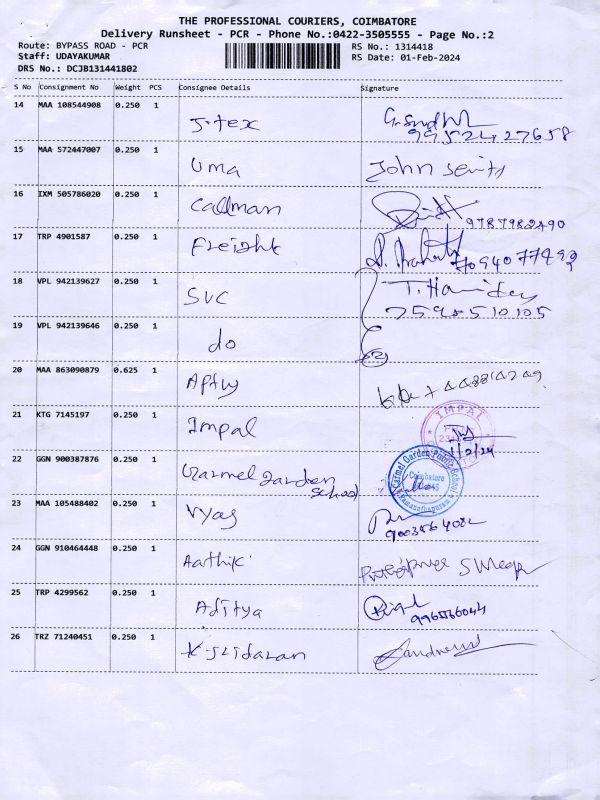 THE PROFESSIONAL COURIERS, COIMBATORE
Delivery Runsheet - PCR - Phone No.:0422-3505555 - Page No.:2
Route: BYPASS ROAD - PCR RS No.: 1314418
Staff: UDAYAKUMAR RS Date: 01-Feb-2024
DRS No.: DCJB131441802
S No Consignment No Weight PCS Consignee Details Signature
14 MAA 108544908 0.250 1
J-tex
15 MAA 572447007 0.250 1
Uma John
16 IXM 505786020 0.250 1
Callman 9787982490
17 TRP 4901587 0.250 1
Freight 7094077492
18 VPL 942139627 0.250 1
SVC
7598510105
19 VPL 942139646 0.250 1
do
20 MAA 863090879 0.625 1
21 KTG 7145197 0.250 1
Impal IMPAL
1/2/24
22 GGN 900387876 0.250 1
Carmel Garden School
Carmel Garden Public School
Coimbatore
Ramanathapuram
23 MAA 105488402 0.250 1
Vyas
24 GGN 910464448 0.250 1
Aarthik
25 TRP 4299562 0.250 1
Aditya
26 TRZ 71240451 0.250 1
K-Sridaran